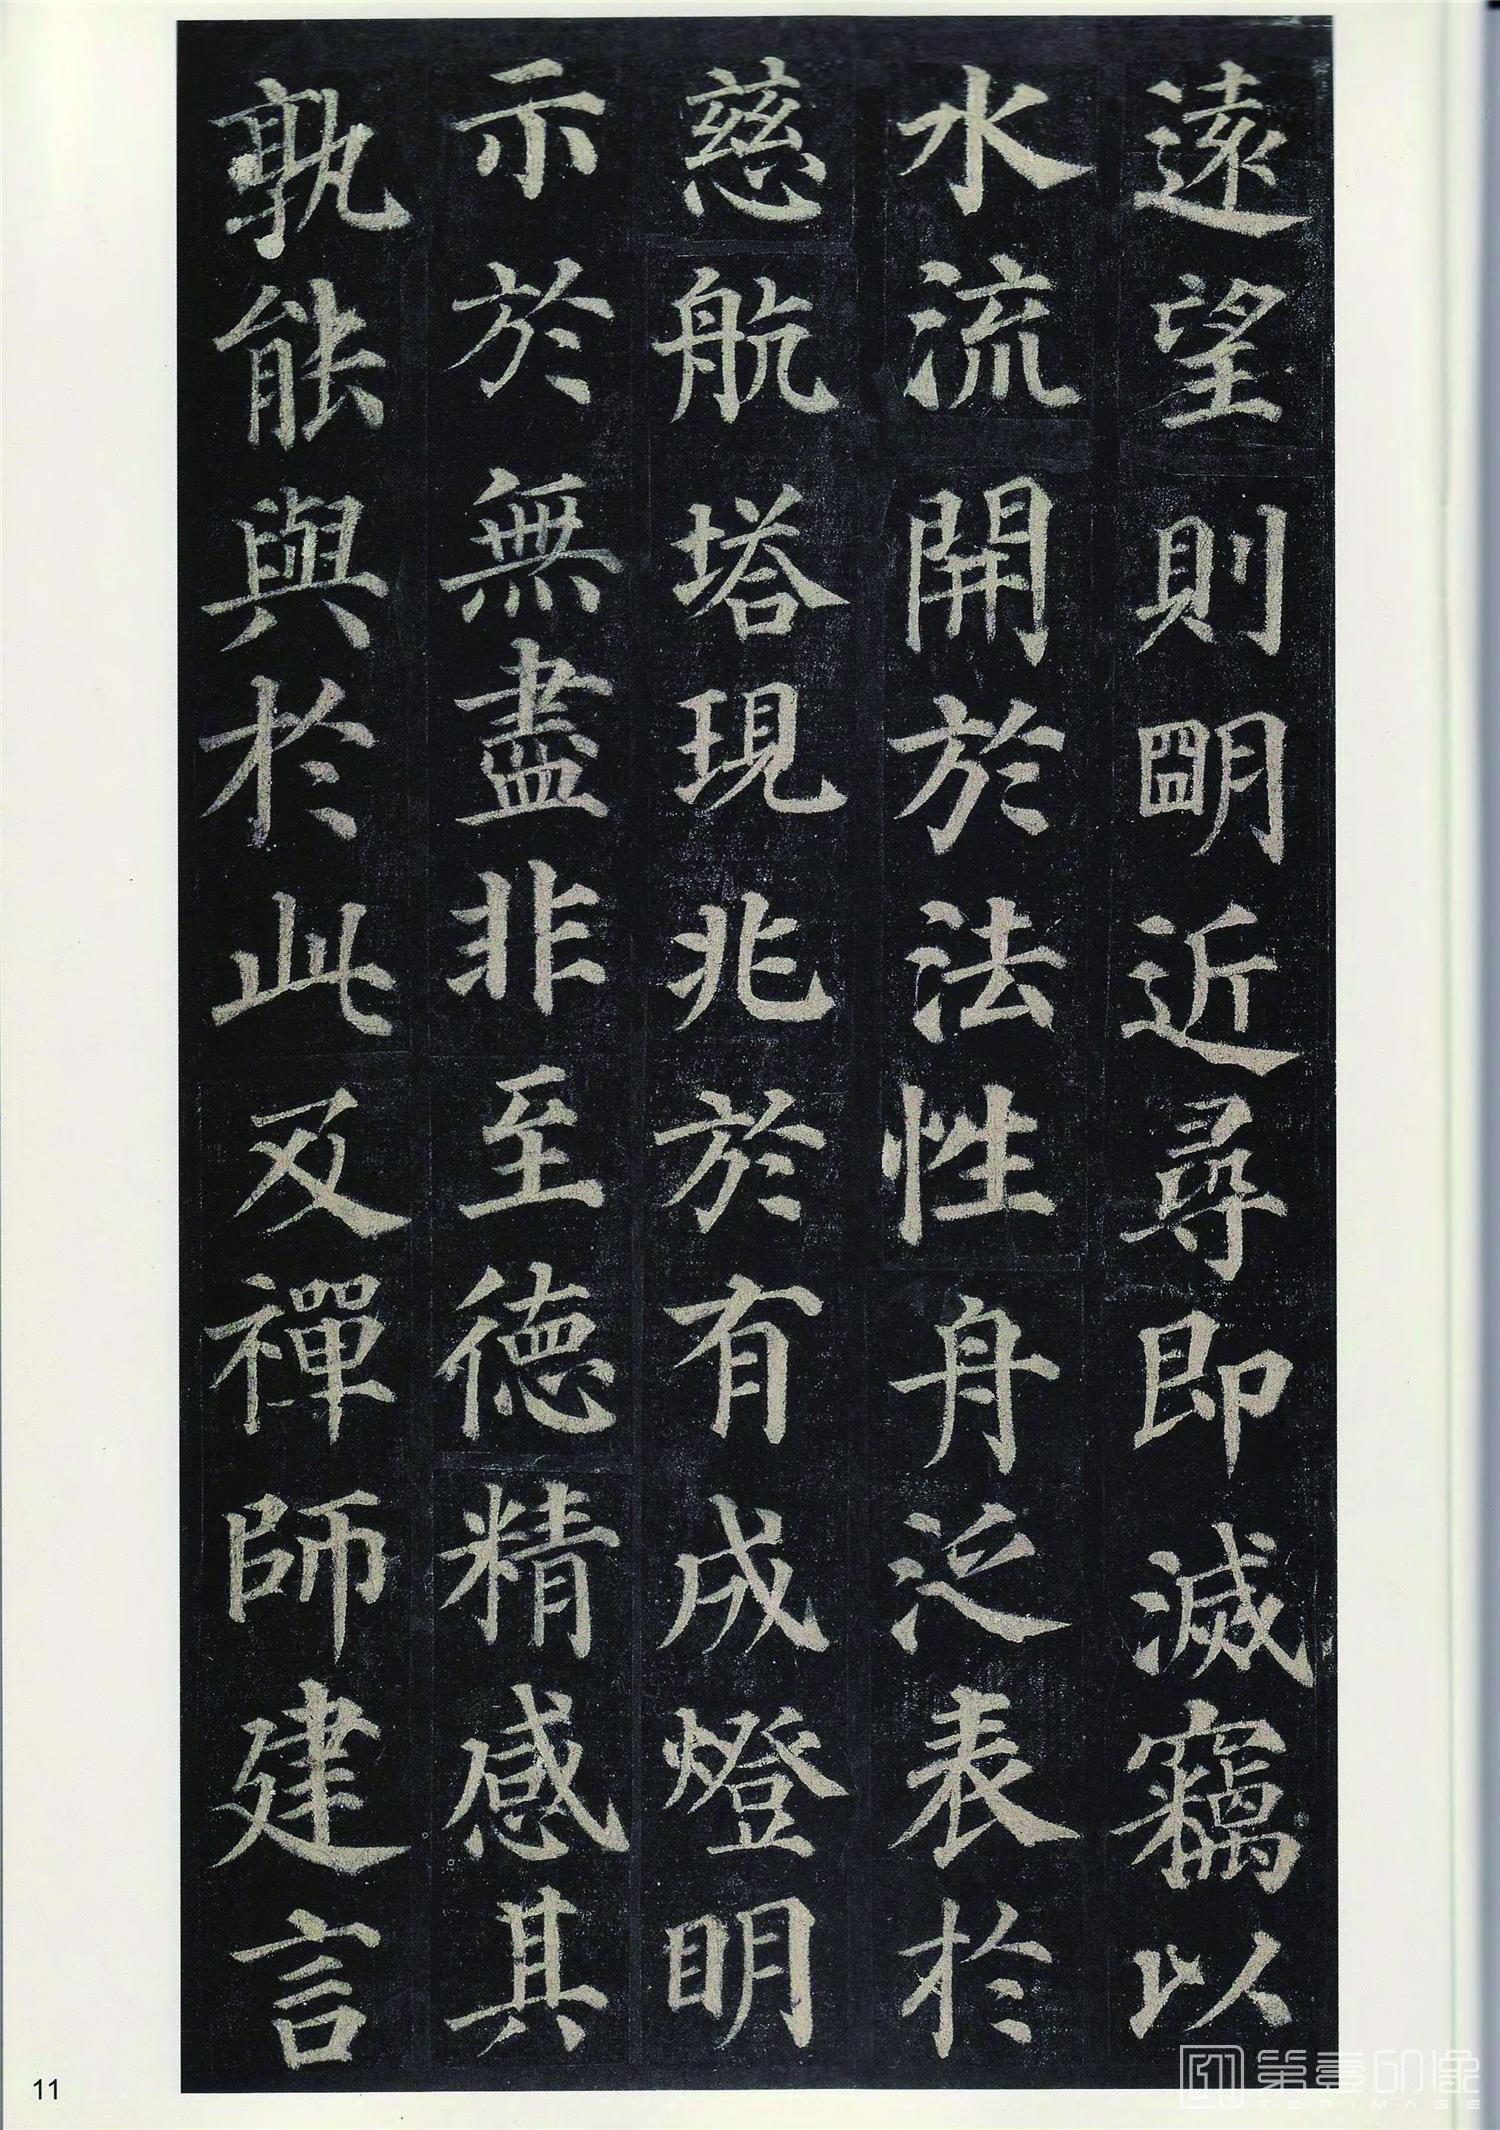 遠望則朙近尋即滅竊以
水流開於法性舟泛表於
慈航塔現兆於有成燈明
示於無盡非至德精感其
孰能與於此及禪師建言
11
第壹印像
TOPIMAGE